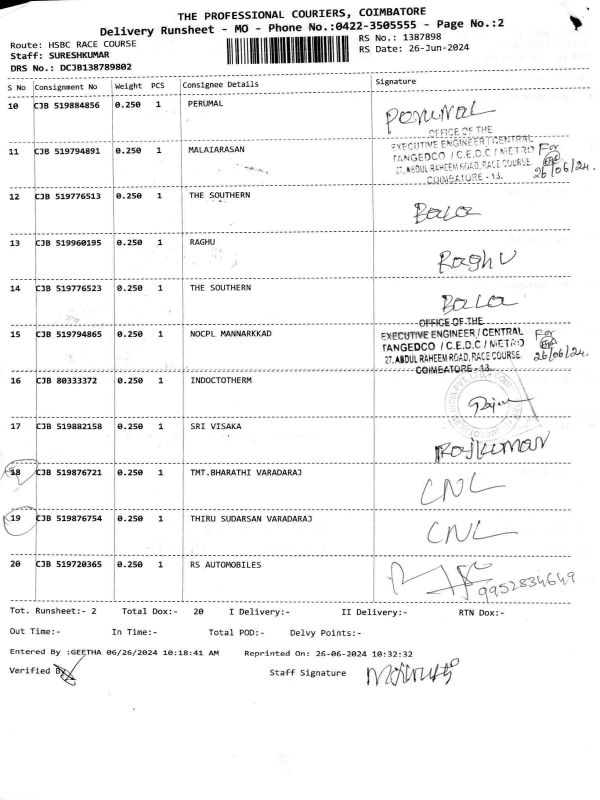 THE PROFESSIONAL COURIERS, COIMBATORE
Delivery Runsheet - MO - Phone No.:0422-3505555 - Page No.:2
Route: HSBC RACE COURSE
RS No.: 1387898
Staff: SURESHKUMAR
RS Date: 26-Jun-2024
DRS No.: DCJB138789802
S No Consignment No Weight PCS Consignee Details Signature
10 CJB 519884856 0.250 1 PERUMAL Perumal
OFFICE OF THE
EXECUTIVE ENGINEER / CENTRAL
11 CJB 519794891 0.250 1 MALAIARASAN TANGEDCO / C.E.D.C / METRO For
27, ABDUL RAHEEM ROAD, RACE COURSE.
COIMBATORE - 13. 26/06/24.
12 CJB 519776513 0.250 1 THE SOUTHERN Bala
13 CJB 519960195 0.250 1 RAGHU Raghu
14 CJB 519776523 0.250 1 THE SOUTHERN Bala
OFFICE OF THE
15 CJB 519794865 0.250 1 NOCPL MANNARKKAD EXECUTIVE ENGINEER / CENTRAL For
TANGEDCO / C.E.D.C / METRO
27, ABDUL RAHEEM ROAD, RACE COURSE. 26/06/24.
COIMBATORE - 13.
16 CJB 80333372 0.250 1 INDOCTOTHERM
17 CJB 519882158 0.250 1 SRI VISAKA Rajkumar
18 CJB 519876721 0.250 1 TMT.BHARATHI VARADARAJ CNL
19 CJB 519876754 0.250 1 THIRU SUDARSAN VARADARAJ CNL
20 CJB 519720365 0.250 1 RS AUTOMOBILES 9952834649
Tot. Runsheet:- 2 Total Dox:- 20 I Delivery:- II Delivery:- RTN Dox:-
Out Time:- In Time:- Total POD:- Delvy Points:-
Entered By :GEETHA 06/26/2024 10:18:41 AM Reprinted On: 26-06-2024 10:32:32
Verified By Staff Signature